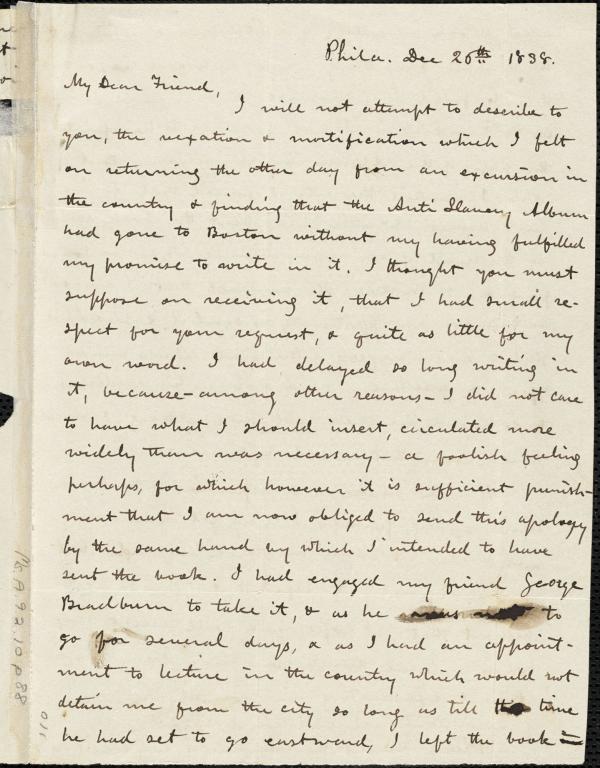 Phila. Dec 26th 1838.
My Dear Friend,
I will not attempt to describe to
you, the vexation & mortification which I felt
on returning the other day from an excursion in
the country & finding that the Anti Slavery Album
had gone to Boston without my having fulfilled
my promise to write in it. I thought you must
suppose on receiving it, that I had small re-
spect for your request, & quite as little for my
own word. I had delayed so long writing in
it, because - among other reasons - I did not care
to have what I should insert, circulated more
widely than was necessary - a foolish feeling
perhaps, for which however it is sufficient punish-
ment that I am now obliged to send this apology
by the same hand by which I intended to have
sent the book. I had engaged my friend George
Bradburn to take it, & as he was not to
go for several days, & as I had an appoint-
ment to lecture in the country which would not
detain me from the city so long as till the time
he had set to go eastward, I left the book
Ms A.9.2.10 p88